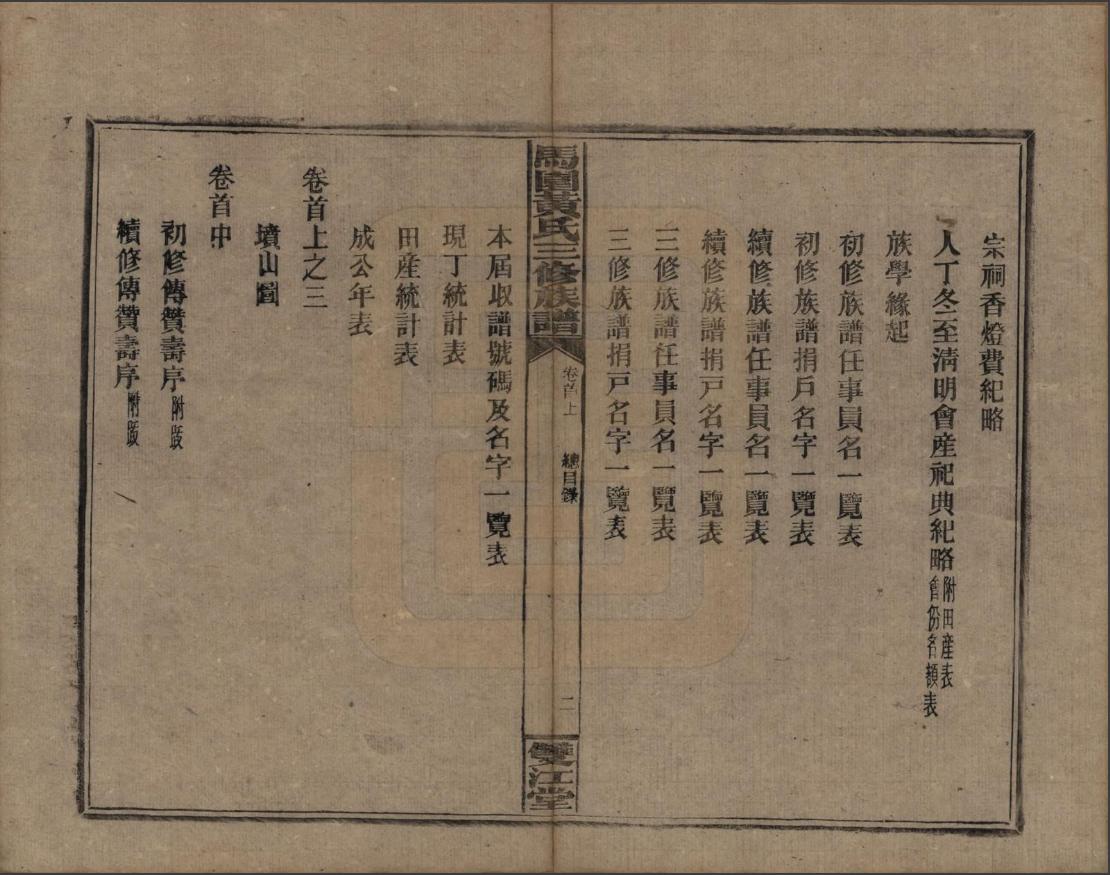 宗祠香燈費紀略
人丁冬至淸明會產祀典紀略附田產表會份名額表
族學緣起
初修族譜任事員名一覽表
初修族譜捐戶名字一覽表
續修族譜任事員名一覽表
續修族譜捐戶名字一覽表
三修族譜任事員名一覽表
三修族譜捐戶名字一覽表
馬園黃氏三修族譜
卷首上
總目錄
二
雙江堂
本屆收譜號碼及名字一覽表
現丁統計表
田產統計表
成公年表
卷首上之三
墳山圖
卷首中
初修傳贊壽序附跋
續修傳贊壽序附跋